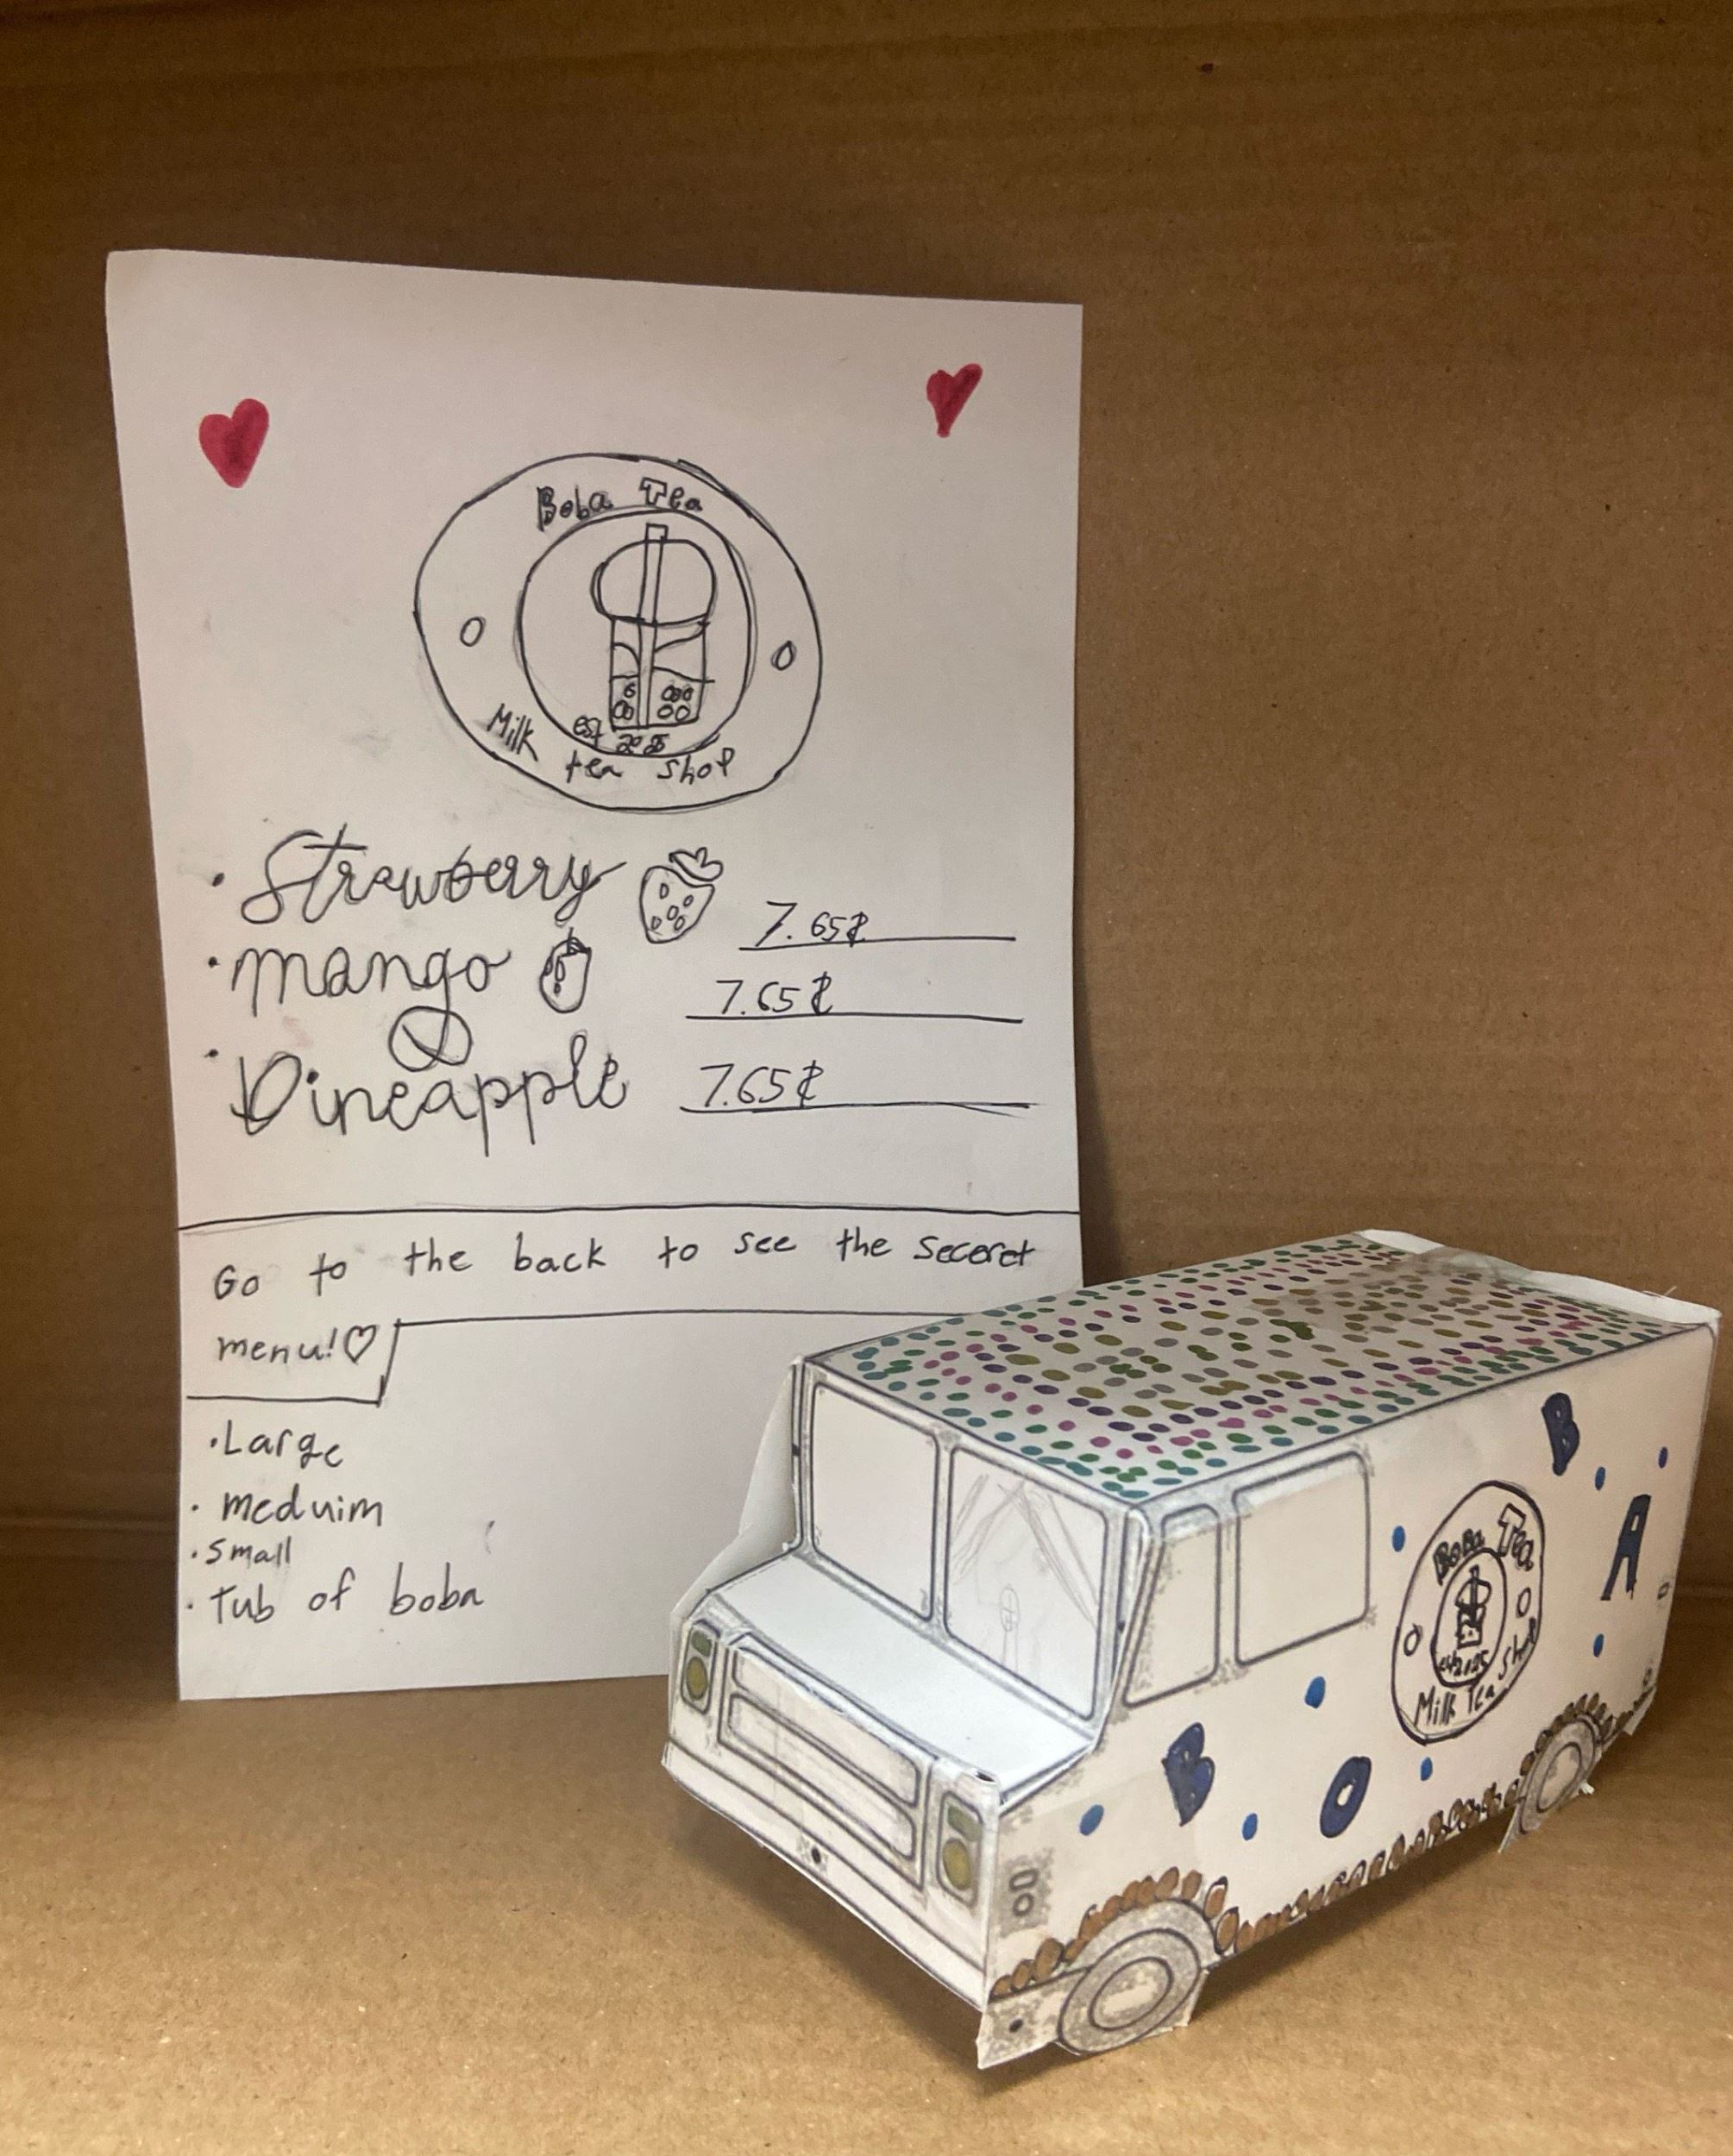 Boba Tea
est 2025
Milk tea shop
• Strawberry 7.65¢
• mango 7.65¢
• Pineapple 7.65¢
Go to the back to see the seceret
menu!♡
• Large
• meduim
• small
• Tub of boba
B O B A
Boba Tea
est 2025
Milk Tea Shop